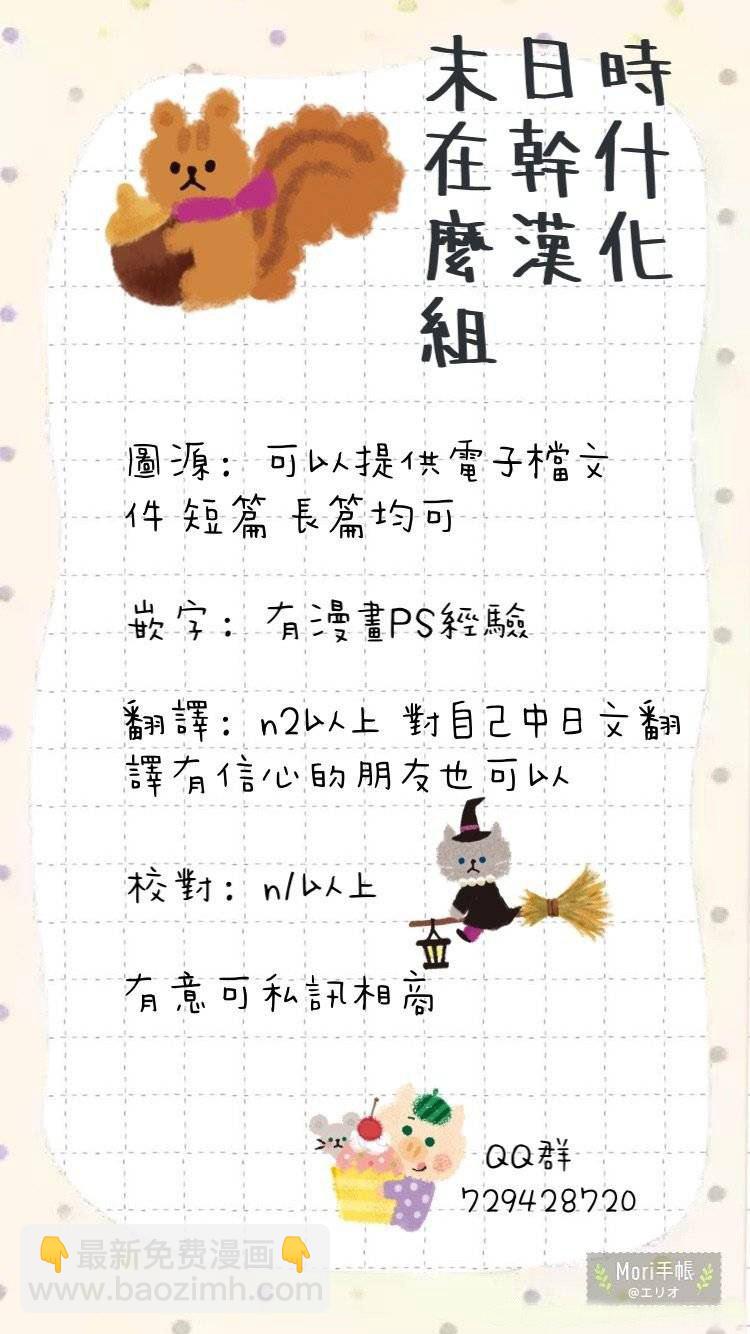 末日時
在幹什
麼漢化
組
圖源：可以提供電子檔文
件 短篇 長篇均可
嵌字：有漫畫PS經驗
翻譯：n2以上 對自己中日文翻
譯有信心的朋友也可以
校對：n1以上
有意可私訊相商
QQ群
729428720
👇最新免费漫画👇
www.baozimh.com
Mori手帳
@エリオ